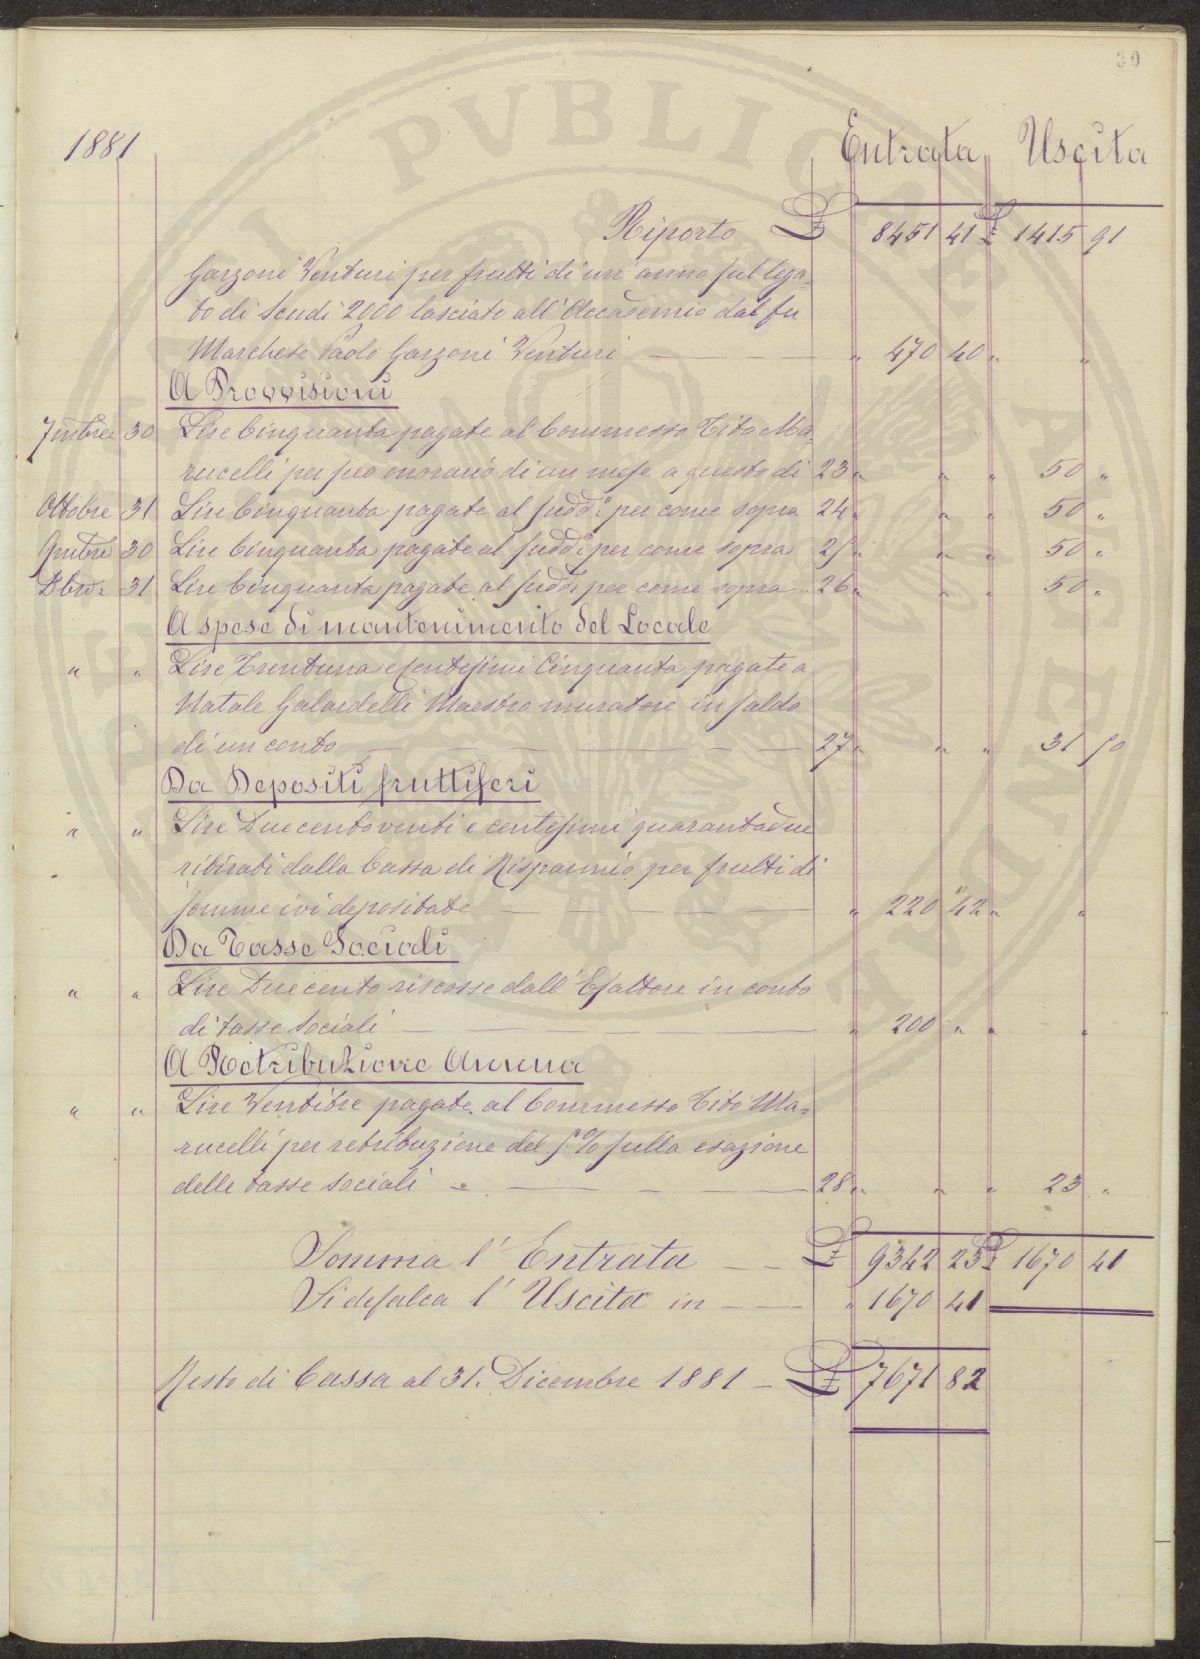 30
1881 Entrata Uscita
Riporto £ 8451 41 £ 1415 91
Garzoni Venturi per frutti di un anno sul lega-
to di Scudi 2000 lasciato all'Accademia dal fu
Marchese Paolo Garzoni Venturi — " 470 40 " "
A Provvisioni
7mbre 30 Lire Cinquanta pagate al Commesso Tito Ma-
rucelli per suo onorario di un mese a questo dì 23 " " " 50 "
Ottobre 31 Lire Cinquanta pagate al sudd.o per come sopra 24 " " " 50 "
9mbre 30 Lire Cinquanta pagate al sudd.o per come sopra 25 " " " 50 "
Xbre 31 Lire Cinquanta pagate al sudd.o per come sopra 26 " " " 50 "
A spese di mantenimento del Locale
" " Lire Trentuna e Centesimi Cinquanta pagate a
Natale Galardelli Maestro muratore in saldo
di un conto — 27 " " " 31 50
Da Depositi fruttiferi
" " Lire Duecentoventi e centesimi quarantadue
ritirati dalla Cassa di Risparmio per frutti di
somme ivi depositate — " 220 42 " "
Da Tasse Sociali
" " Lire Duecento riscosse dall'Esattore in conto
di tasse sociali — " 200 " " "
A Retribuzione Annua
" " Lire Ventitre pagate al Commesso Tito Ma-
rucelli per retribuzione del 5% sulla esazione
delle tasse sociali — 28 " " " 23 "
Somma l'Entrata — £ 9342 23 £ 1670 41
Si defalca l'Uscita in — " 1670 41
Resto di Cassa al 31. Dicembre 1881 — £ 7671 82